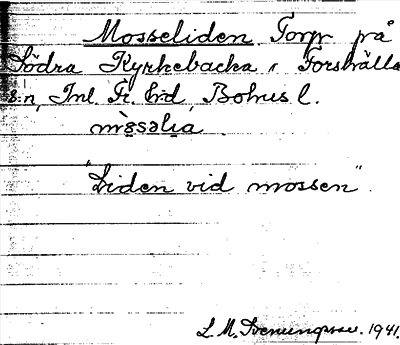 Mosseliden. Torp på
Södra Kyrkebacka i Forshälla
s:n, Inl. Fr. hd, Bohusl.
"Liden vid mossen".
L. M. Svenungsson. 1941.